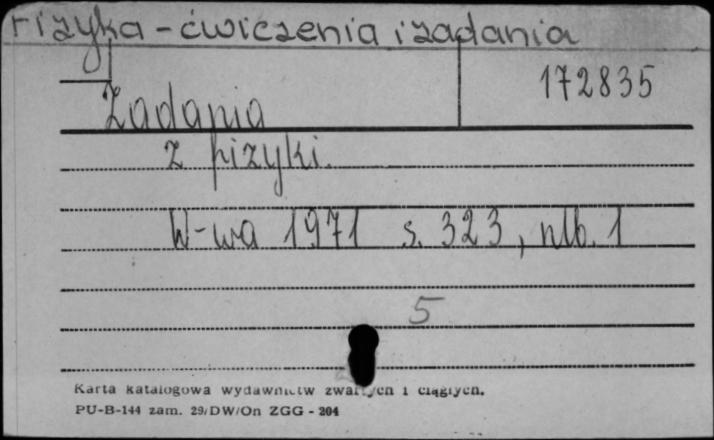 Fizyka - ćwiczenia i zadania
172835
Zadania
z fizyki.
W-wa 1971 s. 323, nlb. 1
5
Karta katalogowa wydawnictw zwartych i ciągłych.
PU-B-144 zam. 29/DW/On ZGG - 204